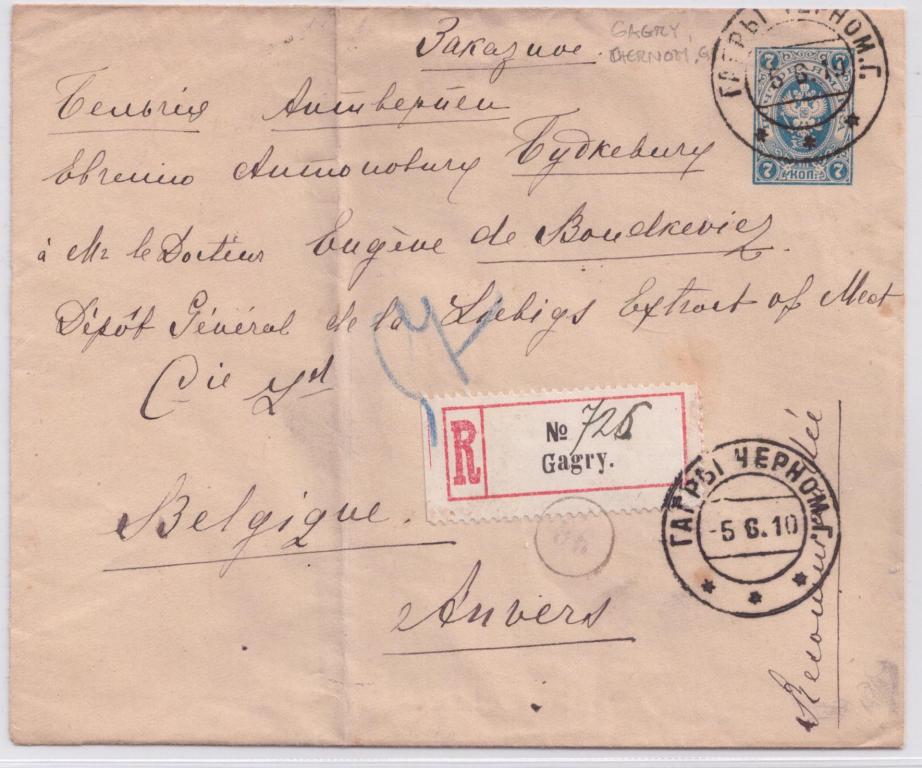 Заказное.
GAGRY,
CHERNOM. G
ГАГРЫ ЧЕРНОМ. Г.
6.10
7 7
7 КОП. 7
Бельгія Антверпен
Евгению Антоновичу Будкевичу
à Mr le Docteur Eugène de Boudkeviez
Dépôt Général de la Liebigs Extract of Meat
Cie Ld
R № 726
Gagry.
ГАГРЫ ЧЕРНОМ. Г.
-5 6.10
Belgique.
Anvers
Recommandée